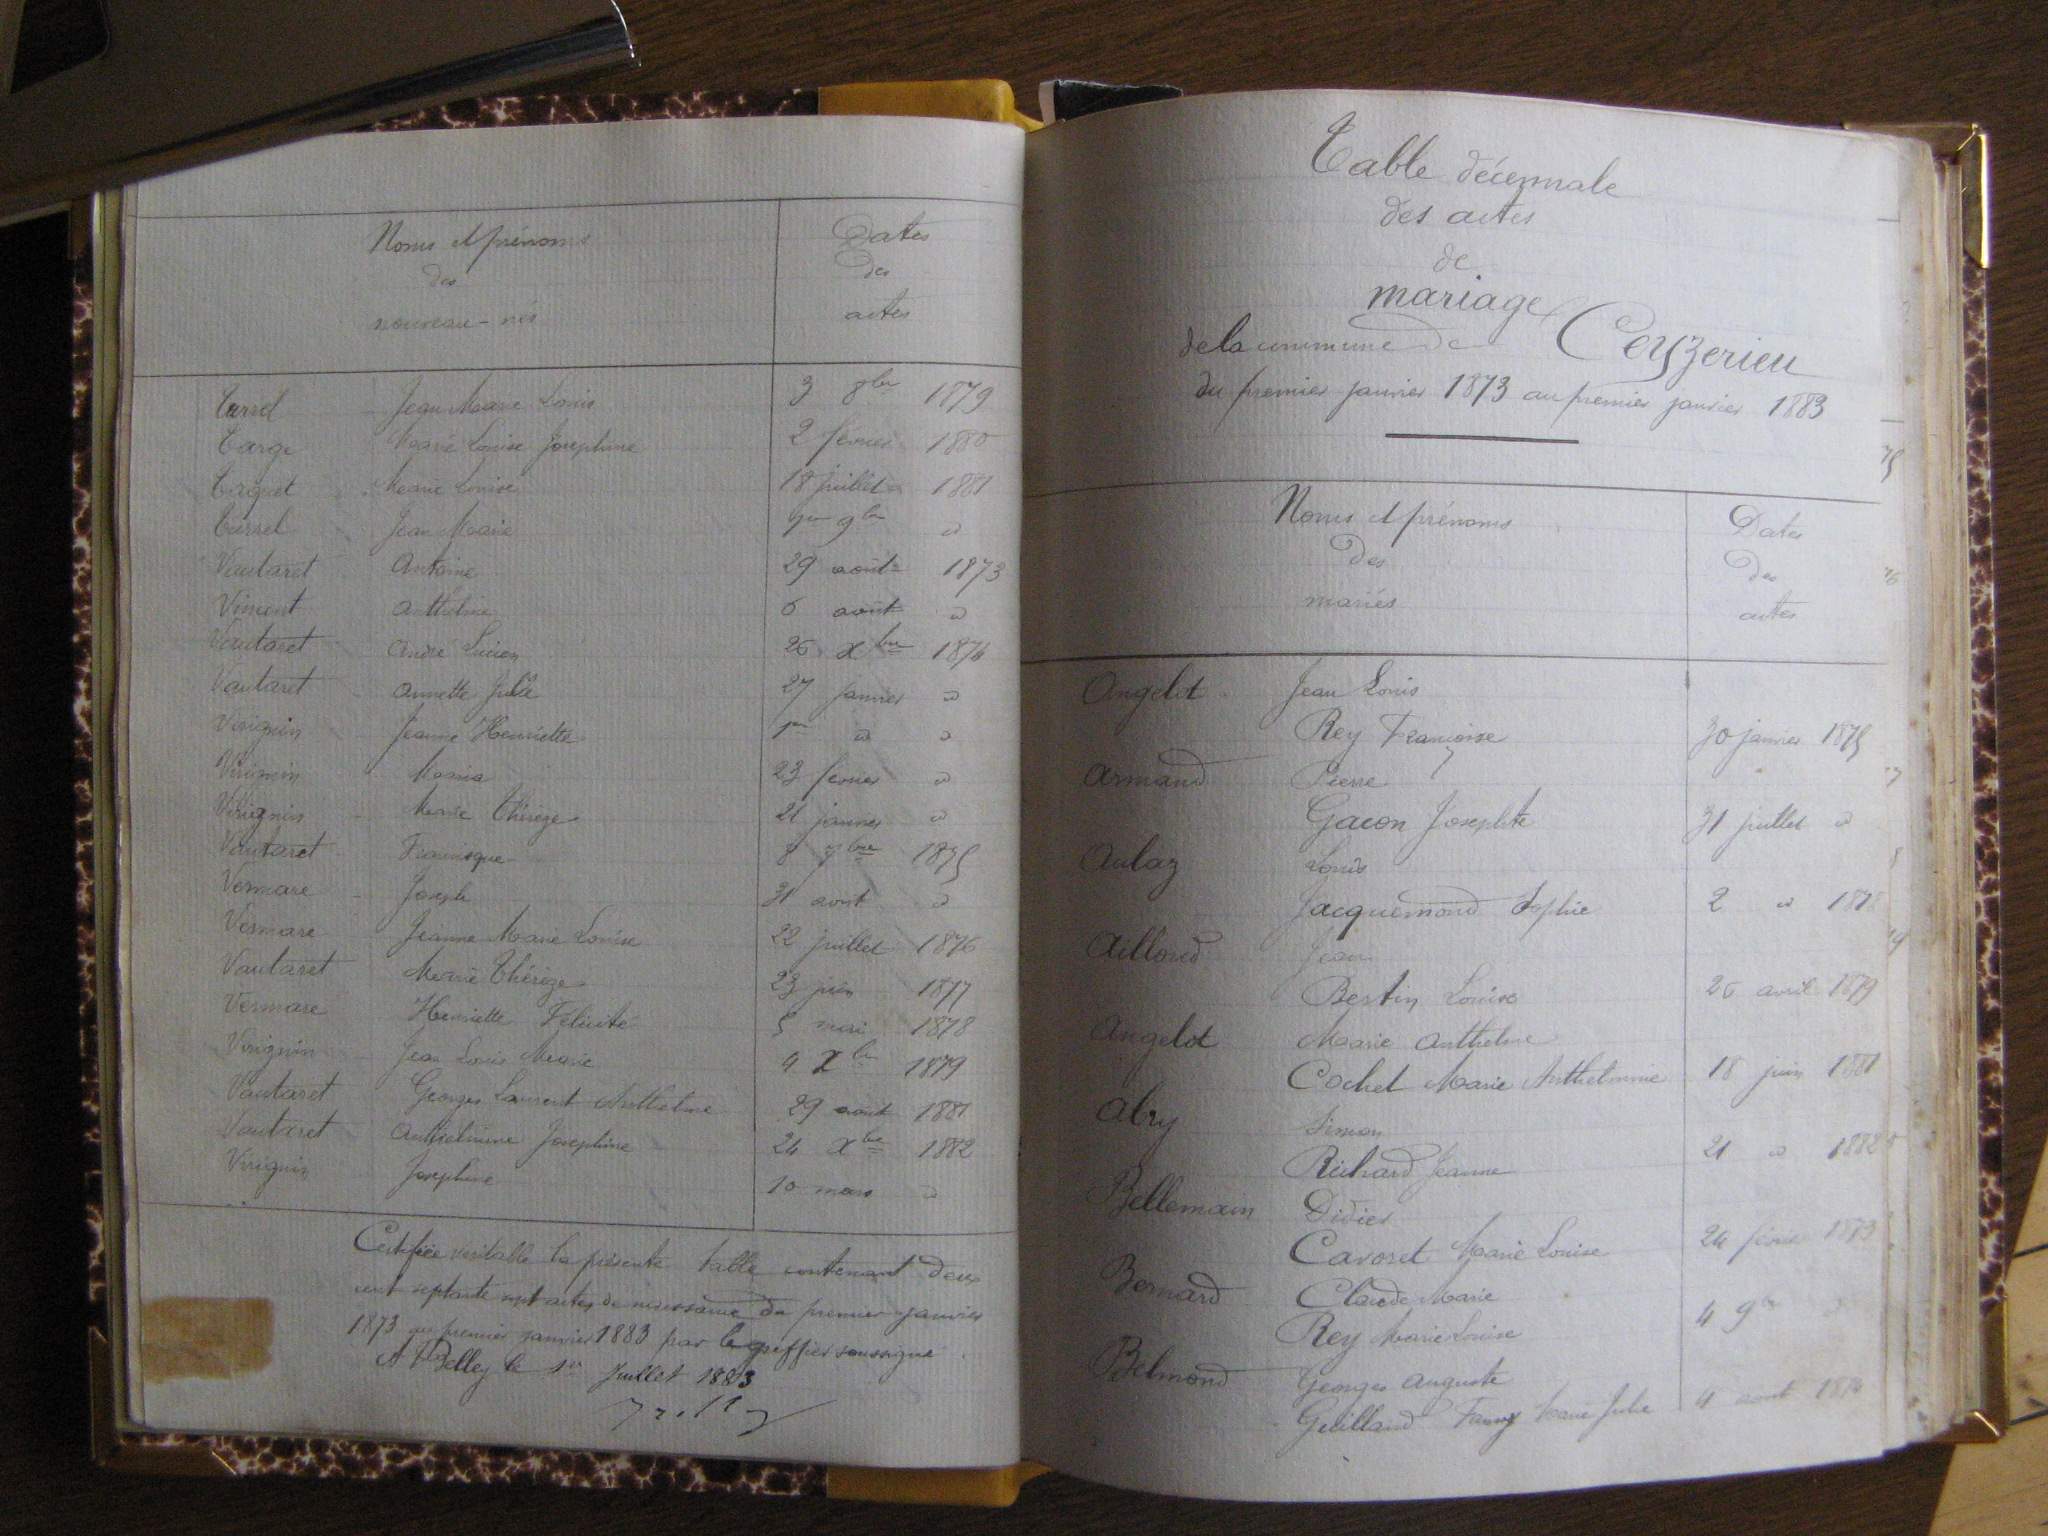 Noms et prénoms
des
nouveau-nés
Dates
des
actes
Turrel Jean Marie Louis 3 8bre 1879
Targe Marie Louise Josephine 2 février 1880
Marie Louise 18 juillet 1881
Turrel Jean Marie 1er 9bre "
Vautaret Antoine 29 août 1873
Vincent Anthelme 6 août "
Vautaret André Lucien 26 Xbre 1874
Vautaret Annette Julie 27 janvier "
Virignin Jeanne Henriette 1er " "
Virignin Maria 23 février "
Virignin Marie Thérèze 21 janvier "
Vautaret Francisque 8 7bre 1875
Vermare Joseph 31 août "
Vermare Jeanne Marie Louise 22 juillet 1876
Vautaret Marie Thérèze 23 juin 1877
Vermare Henriette Félicité 5 mai 1878
Virignin Jean Louis Marie 4 Xbre 1879
Vautaret Georges Laurent Anthelme 29 août 1881
Vautaret Anthelmine Josephine 24 Xbre 1882
Virignin Josephine 10 mars "
Certifiée veritable la présente table contenant deux
cent septante sept actes de naissance du premier janvier
1873 au premier janvier 1883 par le greffier soussigné
A Belley le 1er Juillet 1883
Table décennale
des actes
de
mariage
de la commune de Ceyzerieu
du premier janvier 1873 au premier janvier 1883
Noms et prénoms
des
mariés
Dates
des
actes
Angelot Jean Louis
Rey Françoise 30 janvier 1875
Armand Pierre
Gacon Josephte 31 juillet "
Aulaz Louis
Jacquemond Sophie 2 " 1878
Ailloud Jean
Bertin Louise 26 avril 1879
Angelot Marie Anthelme
Cochet Marie Anthelmine 18 juin 1881
Abry Simon
Richard Jeanne 21 " 1882
Bellemain Didier
Cavoret Marie Louise 24 février 1873
Bernard Claude Marie
Rey Marie Louise 4 9bre "
Belmond Georges Auguste
Guilland Fanny Marie Julie 4 août 1874